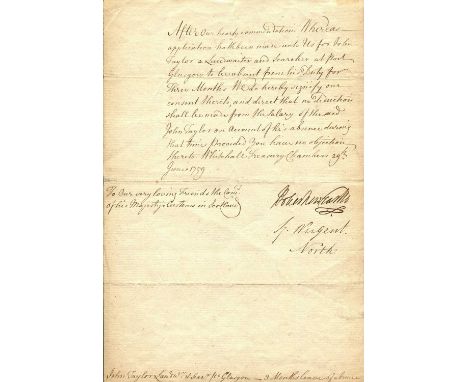 After Our hearty commendations Whereas
application hath been made unto Us for John
Taylor a Landwaiter and Searcher at Port
Glasgow to be absent from his Duty for
Three Months We do hereby signify our
consent thereto, and direct that no deduction
shall be made from the Salary of the said
John Taylor on Account of his absence during
that time Provided You have no objection
thereto Whitehall Treasury Chambers 29th
June 1759
To Our very loving Friends the Comrs
of his Majestys Customs in Scotland
Holles Newcastle
J. Nugent.
North
John Taylor Landwr & Searr Pt Glasgow — 3 Months leave of absence